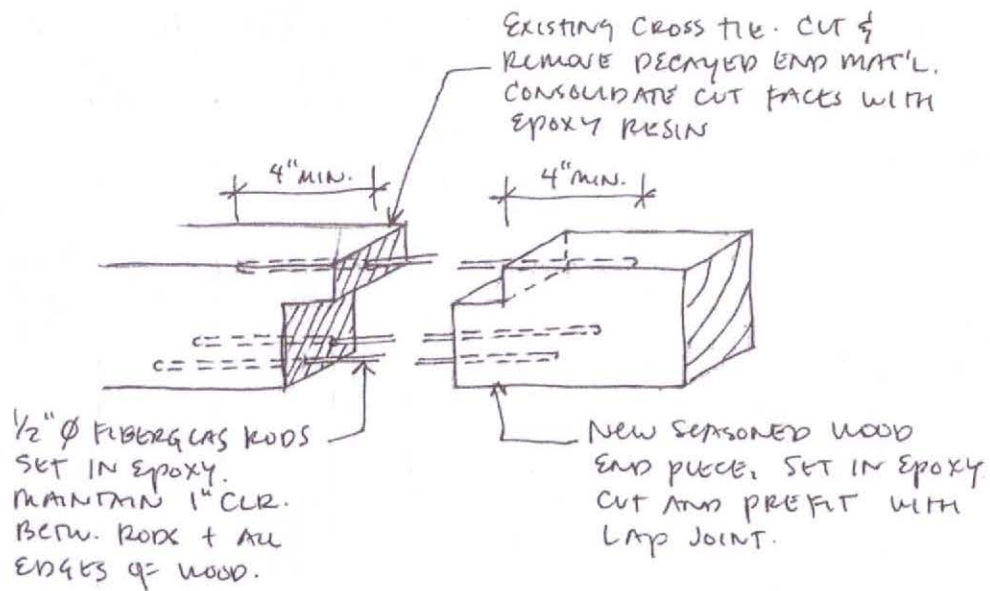 EXISTING CROSS TIE. CUT &
REMOVE DECAYED END MAT'L.
CONSOLIDATE CUT FACES WITH
EPOXY RESIN
4" MIN.
4" MIN.
1/2" Ø FIBERGLAS RODS
SET IN EPOXY.
MAINTAIN 1" CLR.
BETW. RODS + ALL
EDGES OF WOOD.
NEW SEASONED WOOD
END PIECE, SET IN EPOXY
CUT AND PREFIT WITH
LAP JOINT.